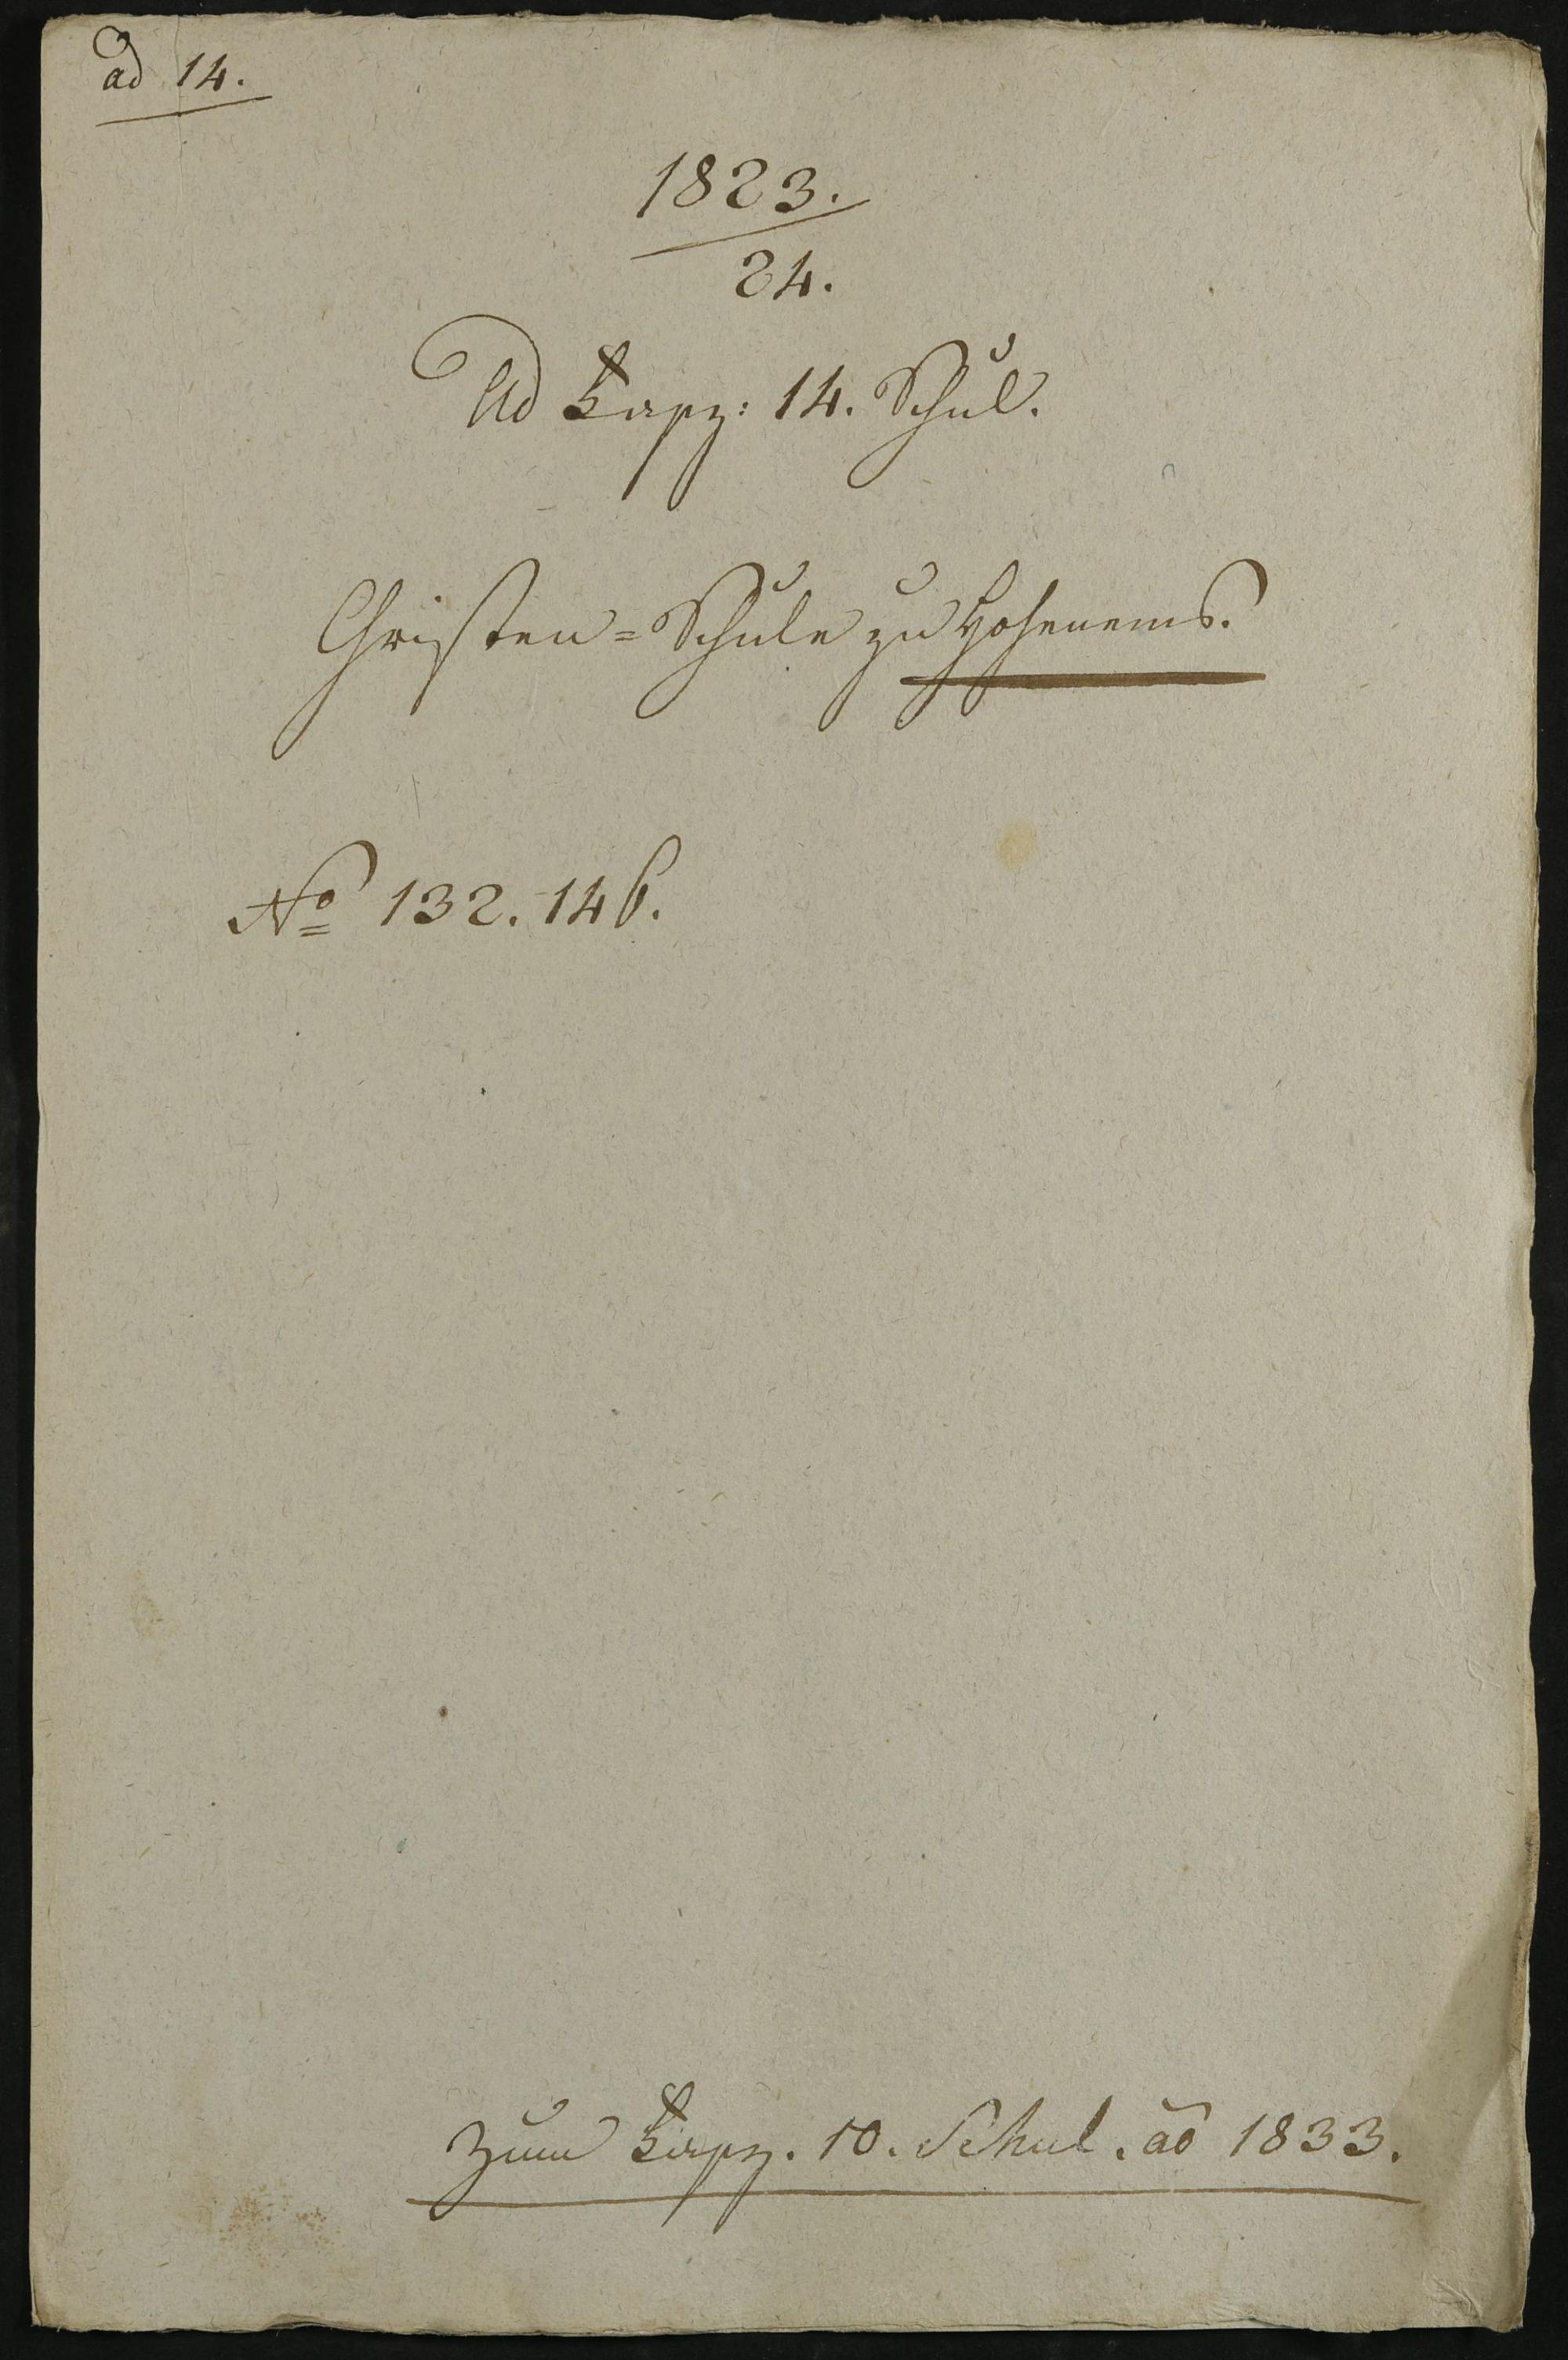 ad 14.
1823.
24.
Ad Fasz: 14. Schul.
Christen=Schule zu Hohenems.
No 132. 146.
zum Fasz. 10. Schul. ao 1833.